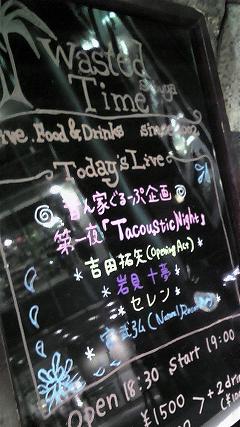 Wasted
Time
Live. Food & Drinks since 2012
Today's Live
音ん家ぐるーぷ企画
第一夜「Tacoustic Night」
* 吉田拓矢 (Opening Act) *
* 岩見 十夢 *
* セレン *
弘 (Natural Records)
Open 18:30 start 19:00
¥1500 > +2 drink